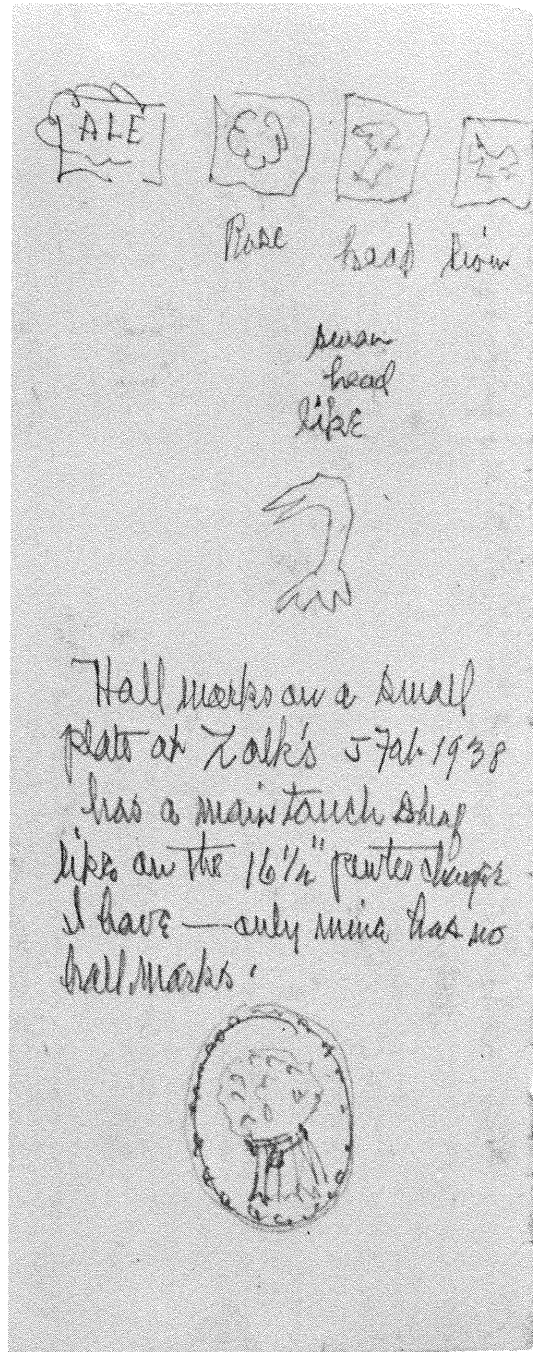 ALE
Rose head lion
swan
head
like
Hall marks on a small
plate at Zalk's 5 Feb 1938
has a main touch
like on the 16½" pewter charger
I have — only mine has no
hall marks.